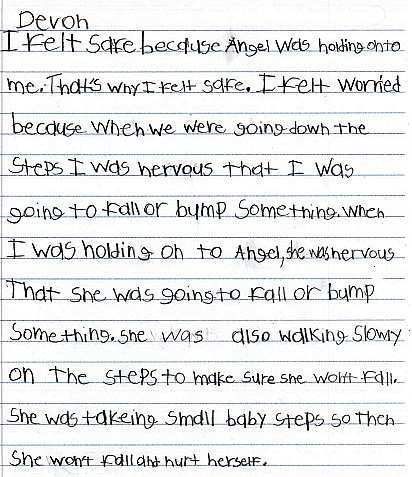 Devon
I felt safe because Angel was holding onto
me. That's why I felt safe. I felt worried
because when we were going down the
steps I was nervous that I was
going to fall or bump something. When
I was holding on to Angel, she was nervous
That she was going to fall or bump
something. she was also walking slowly
on the steps to make sure she won't fall.
She was takeing small baby steps so then
she won't fall and hurt herself.